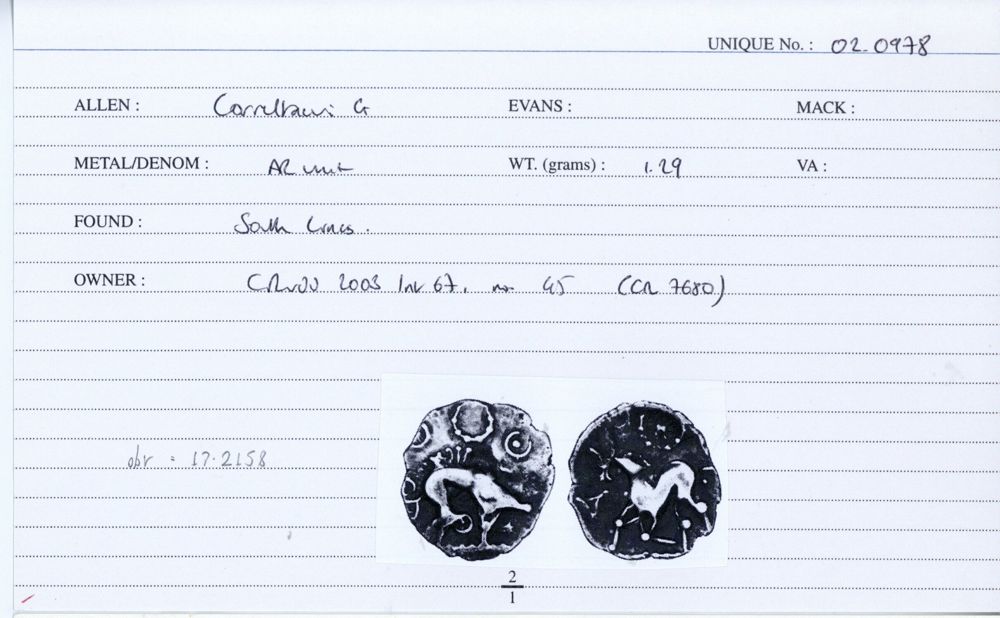 UNIQUE No. : 02.0978
ALLEN : Corieltauvi G EVANS : MACK :
METAL/DENOM : AR unit WT. (grams) : 1.29 VA :
FOUND : South Lincs.
OWNER : 2003 67, no. 45 (CR 7680)
obv = 17.2158
2
1